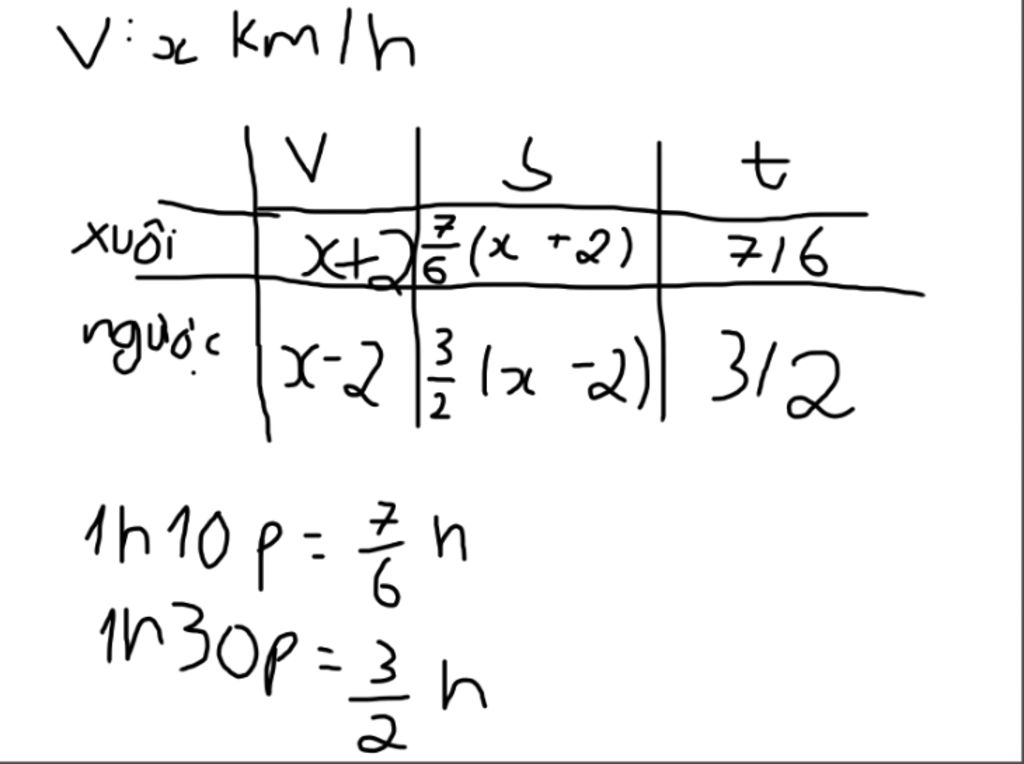 V: x km/h
V S t
xuôi x+2 7/6 (x +2) 7/6
ngược x-2 3/2 (x -2) 3/2
1h10p = 7/6 h
1h30p = 3/2 h